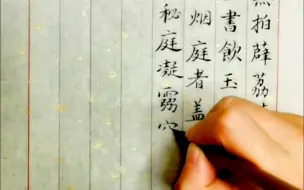 拍薜荔
書飲玉
烟庭者盖
秘庭凝霧